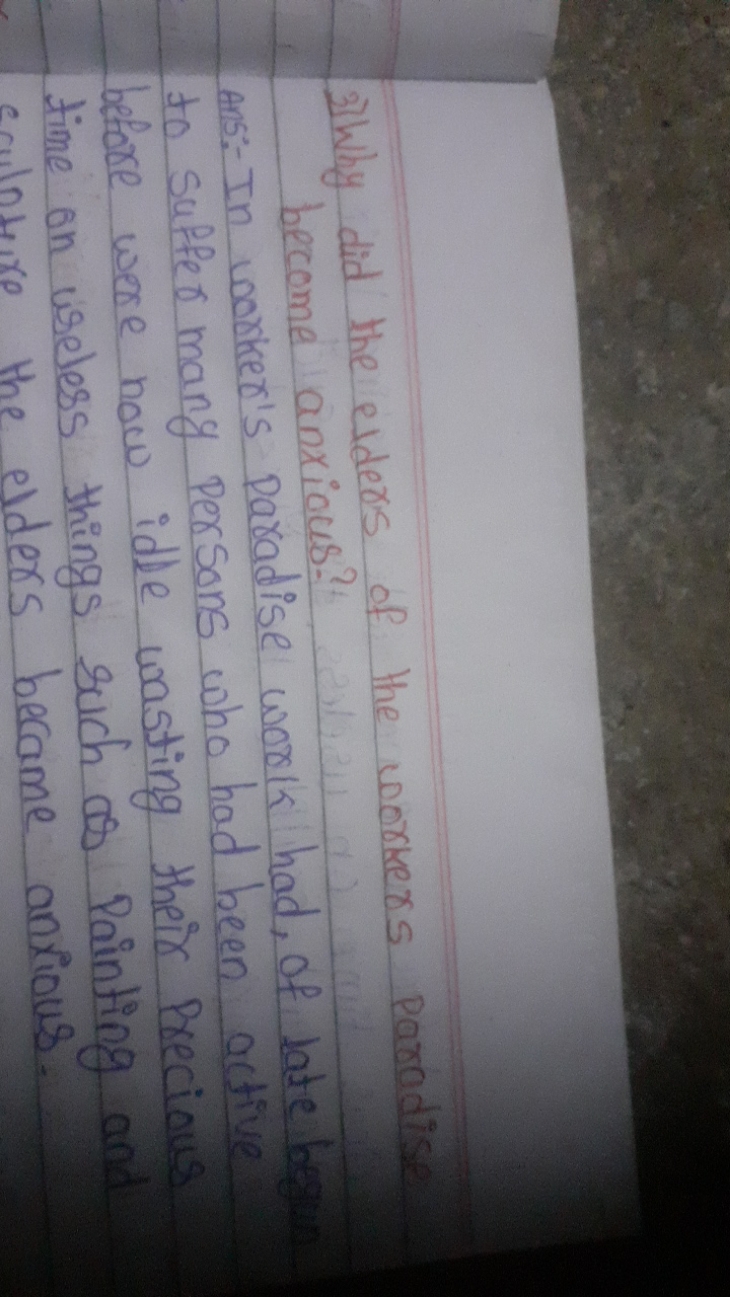 3) Why did the elders of the workers Paradise
become anxious?
Ans:- In worker's Paradise work had, of late begun
to suffer many Persons who had been active
before were now idle wasting their Precious
time on useless things such as Painting and
sculpture the elders became anxious.